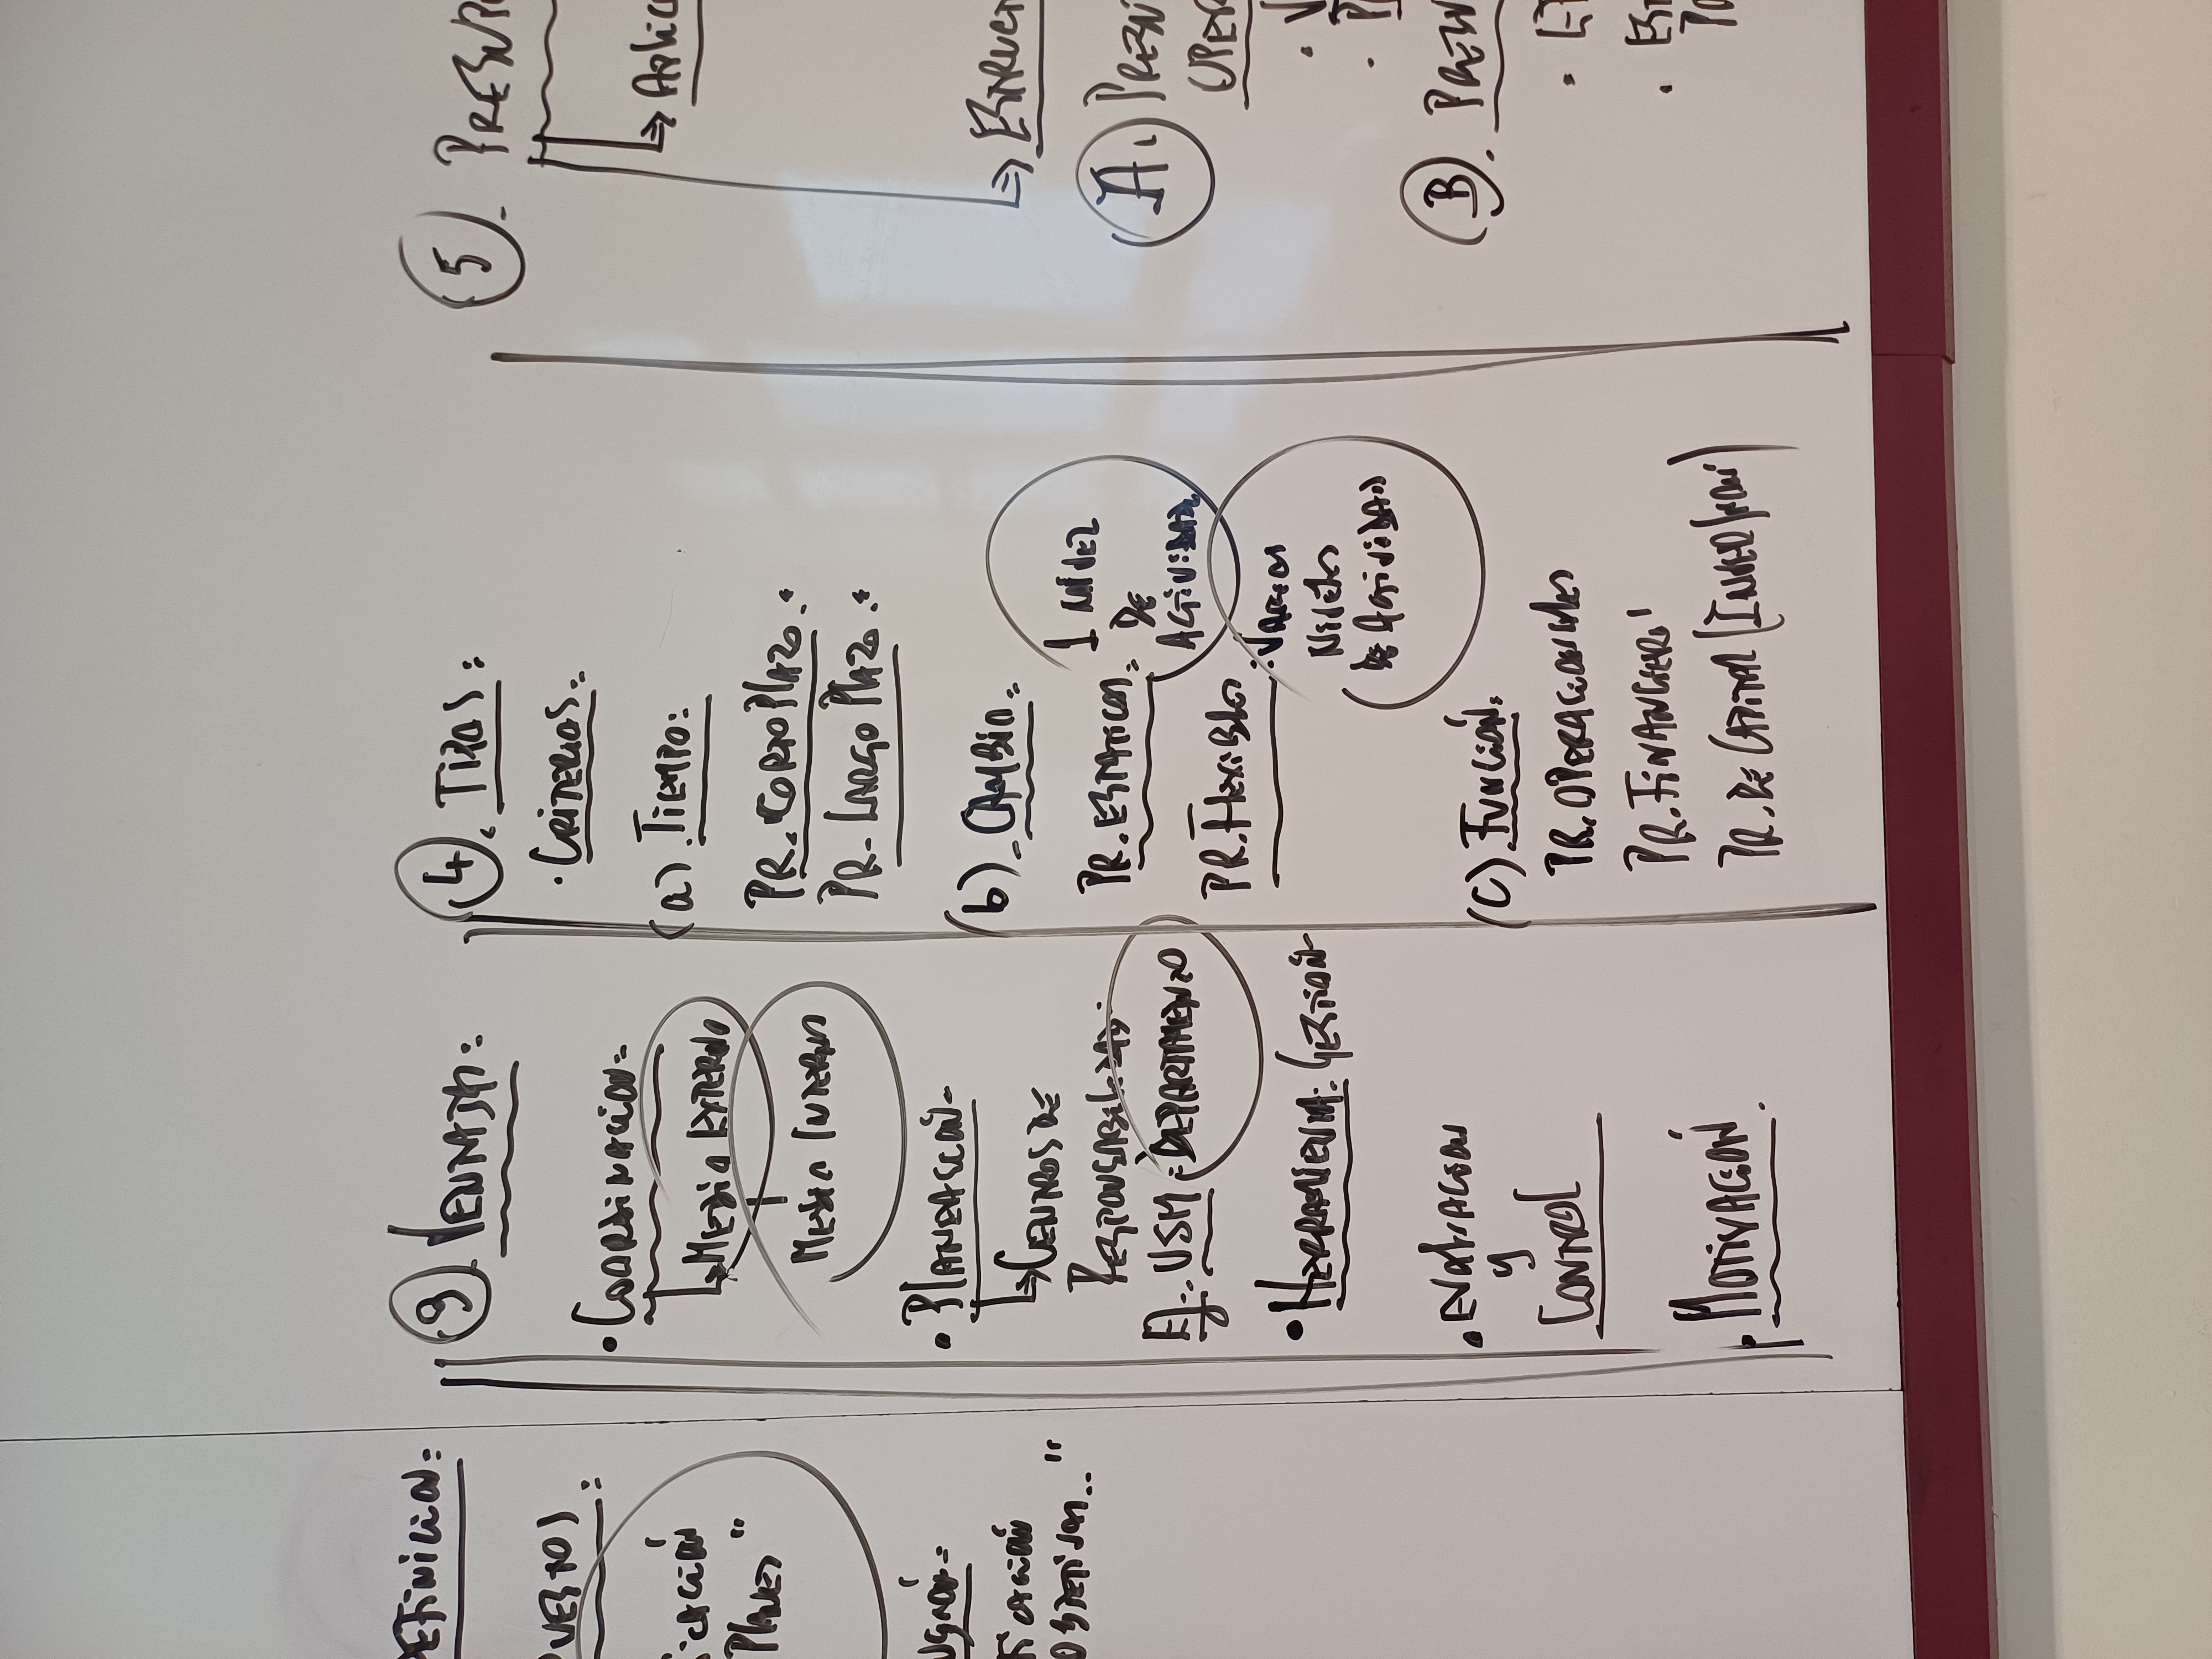 DEFINICION:
PUESTOS:
ICACIÓN
PLANES"
"
③. VENTAJAS:
• COORDINACION:
MEDIO EXTERNO
MEDIO INTERNO
• PLANEACIÓN-
CENTROS DE
RESPONSABILIDAD.
EJ.: USM: DEPARTAMENTO
• HERRAMIENTA: GESTIÓN
• EVALUACION
Y
CONTROL
• MOTIVACIÓN.
④. TIPOS:
• CRITERIOS:
(a). TIEMPO:
PR. CORTO PLAZO.:
PR- LARGO PLAZO.:
(b). CAMBIO:
PR. ESTATICOS: 1 NIVEL
DE
ACTIVIDAD.
PR. FLEXIBLES: VARIOS
NIVELES
DE ACTIVIDAD
(C). FUNCIÓN:
PR. OPERACIONALES
PR. FINANCIERO
PR. DE CAPITAL
⑤. PRESUPU
APLIC
ESTRUCT
A. PRESU
OPER
B. PRESU
EST